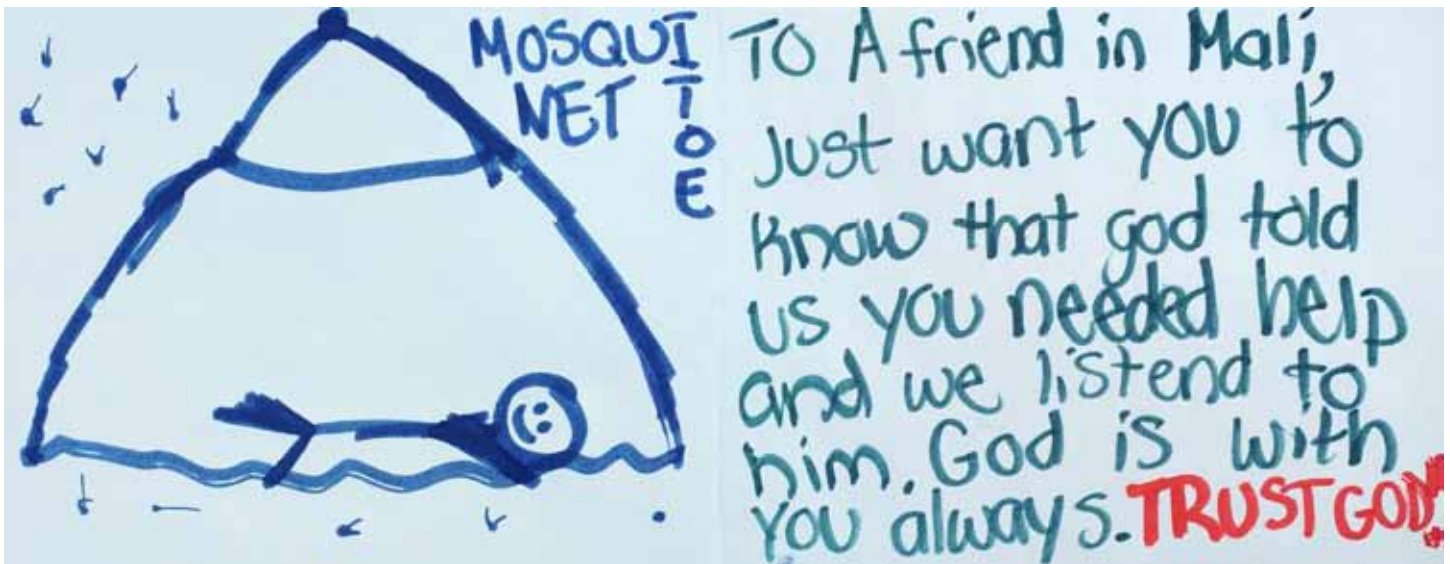 MOSQUITOE
NET
TO A friend in Mali,
Just want you to
know that god told
us you needed help
and we listend to
him. God is with
you always. TRUST GOD!